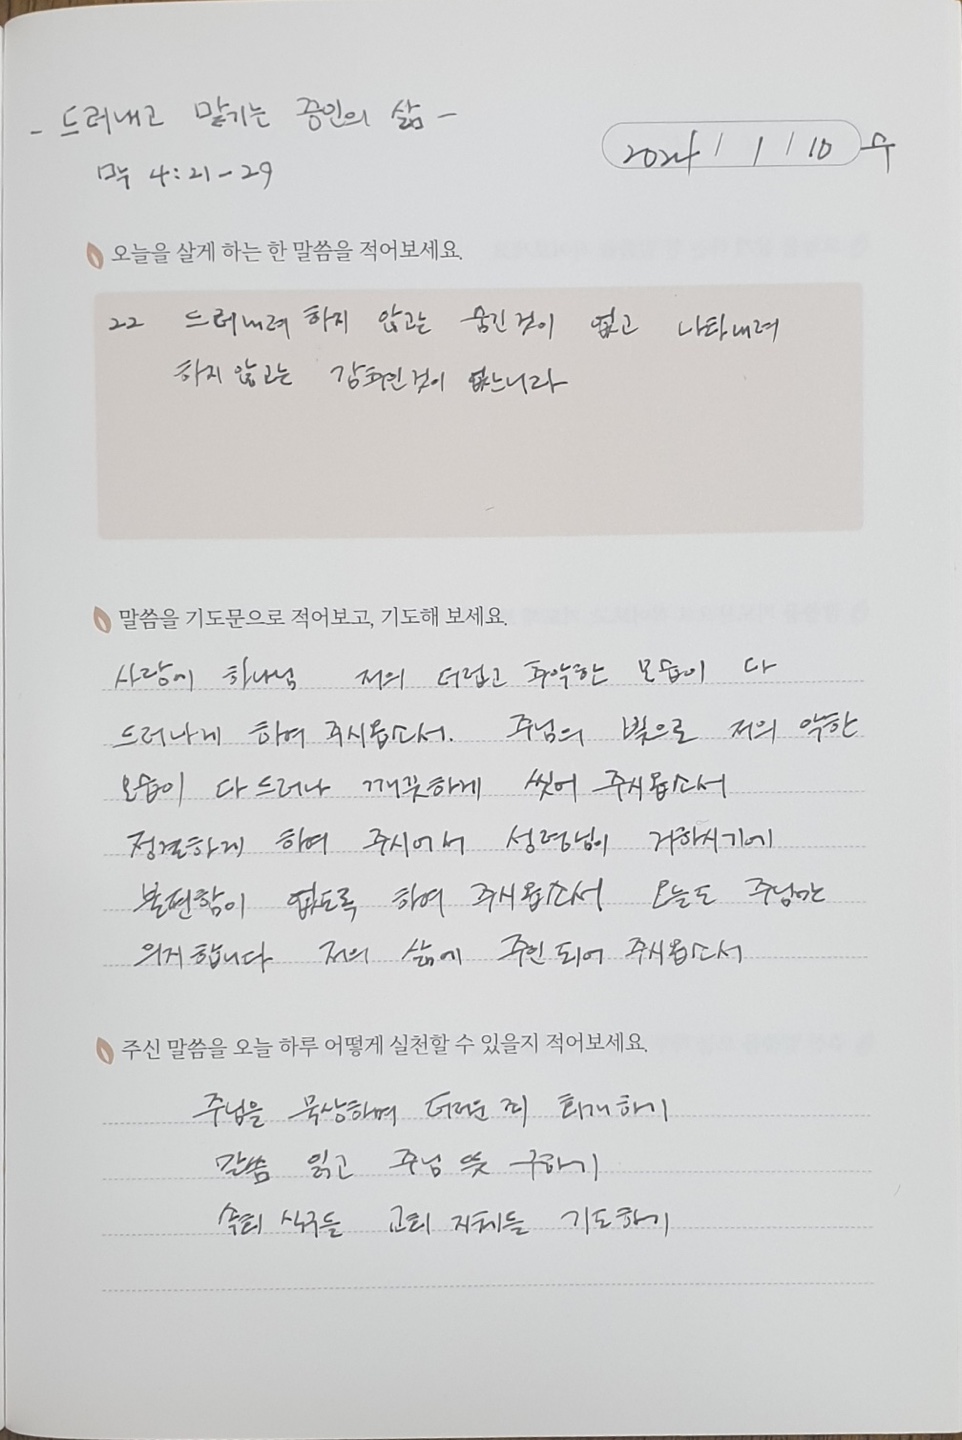 - 드러내고 맡기는 증인의 삶 -
2024 / 1 / 10 수
막 4:21-29
오늘을 살게 하는 한 말씀을 적어보세요.
22 드러내려 하지 않고는 숨긴것이 없고 나타내려
하지 않고는 감추인것이 없느니라
말씀을 기도문으로 적어보고, 기도해 보세요.
사랑에 하나님 저의 더럽고 추악한 모습이 다
드러나게 하여 주시옵소서. 주님의 빛으로 저의 악한
모습이 다 드러나 깨끗하게 씻어 주시옵소서
정결하게 하여 주시어서 성령님이 거하시기에
불편함이 없도록 하여 주시옵소서 오늘도 주님만
의지합니다 저의 삶에 주인 되어 주시옵소서
주신 말씀을 오늘 하루 어떻게 실천할 수 있을지 적어보세요.
주님을 묵상하며 더러운 죄 회개하기
말씀 읽고 주님 뜻 구하기
속회 식구들 교회 지체들 기도하기